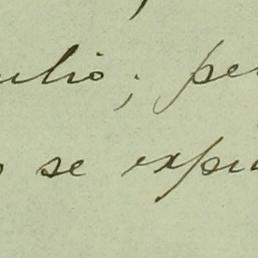 ulio; pe
se expi